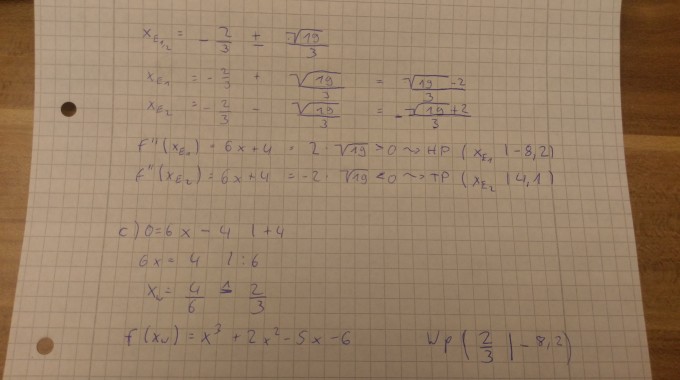 x_E₁,₂ = - 2/3 ± √19/3
x_E₁ = - 2/3 + √19/3 = (√19 - 2)/3
x_E₂ = - 2/3 - √19/3 = - (√19 + 2)/3
f''(x_E₁) = 6x+4 = 2 · √19 > 0 ⤳ HP ( x_E₁ | -8,2)
f''(x_E₂) = 6x+4 = -2 · √19 < 0 ⤳ TP ( x_E₂ | 4,1)
c) 0=6x - 4 | +4
6x = 4 | :6
x_w = 4/6 ≙ 2/3
f(x_w) = x³ + 2x² - 5x - 6 Wp ( 2/3 | - 8,2)